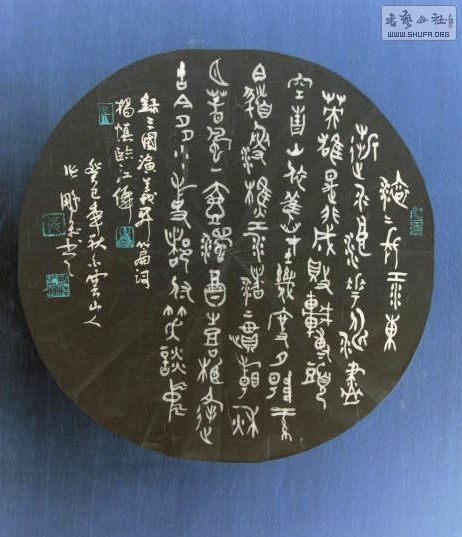 書藝公社
WWW.SHUFA.ORG
滾〻長江東
逝水浪花淘盡
英雄是非成敗轉頭
空青山依舊在幾度夕陽紅
白髮漁樵江渚上慣看秋
月春風一壺濁酒喜相逢
古今多少事都付笑談中
錄三國演義開篇詞
楊慎臨江僊
癸巳年秋 雲山人